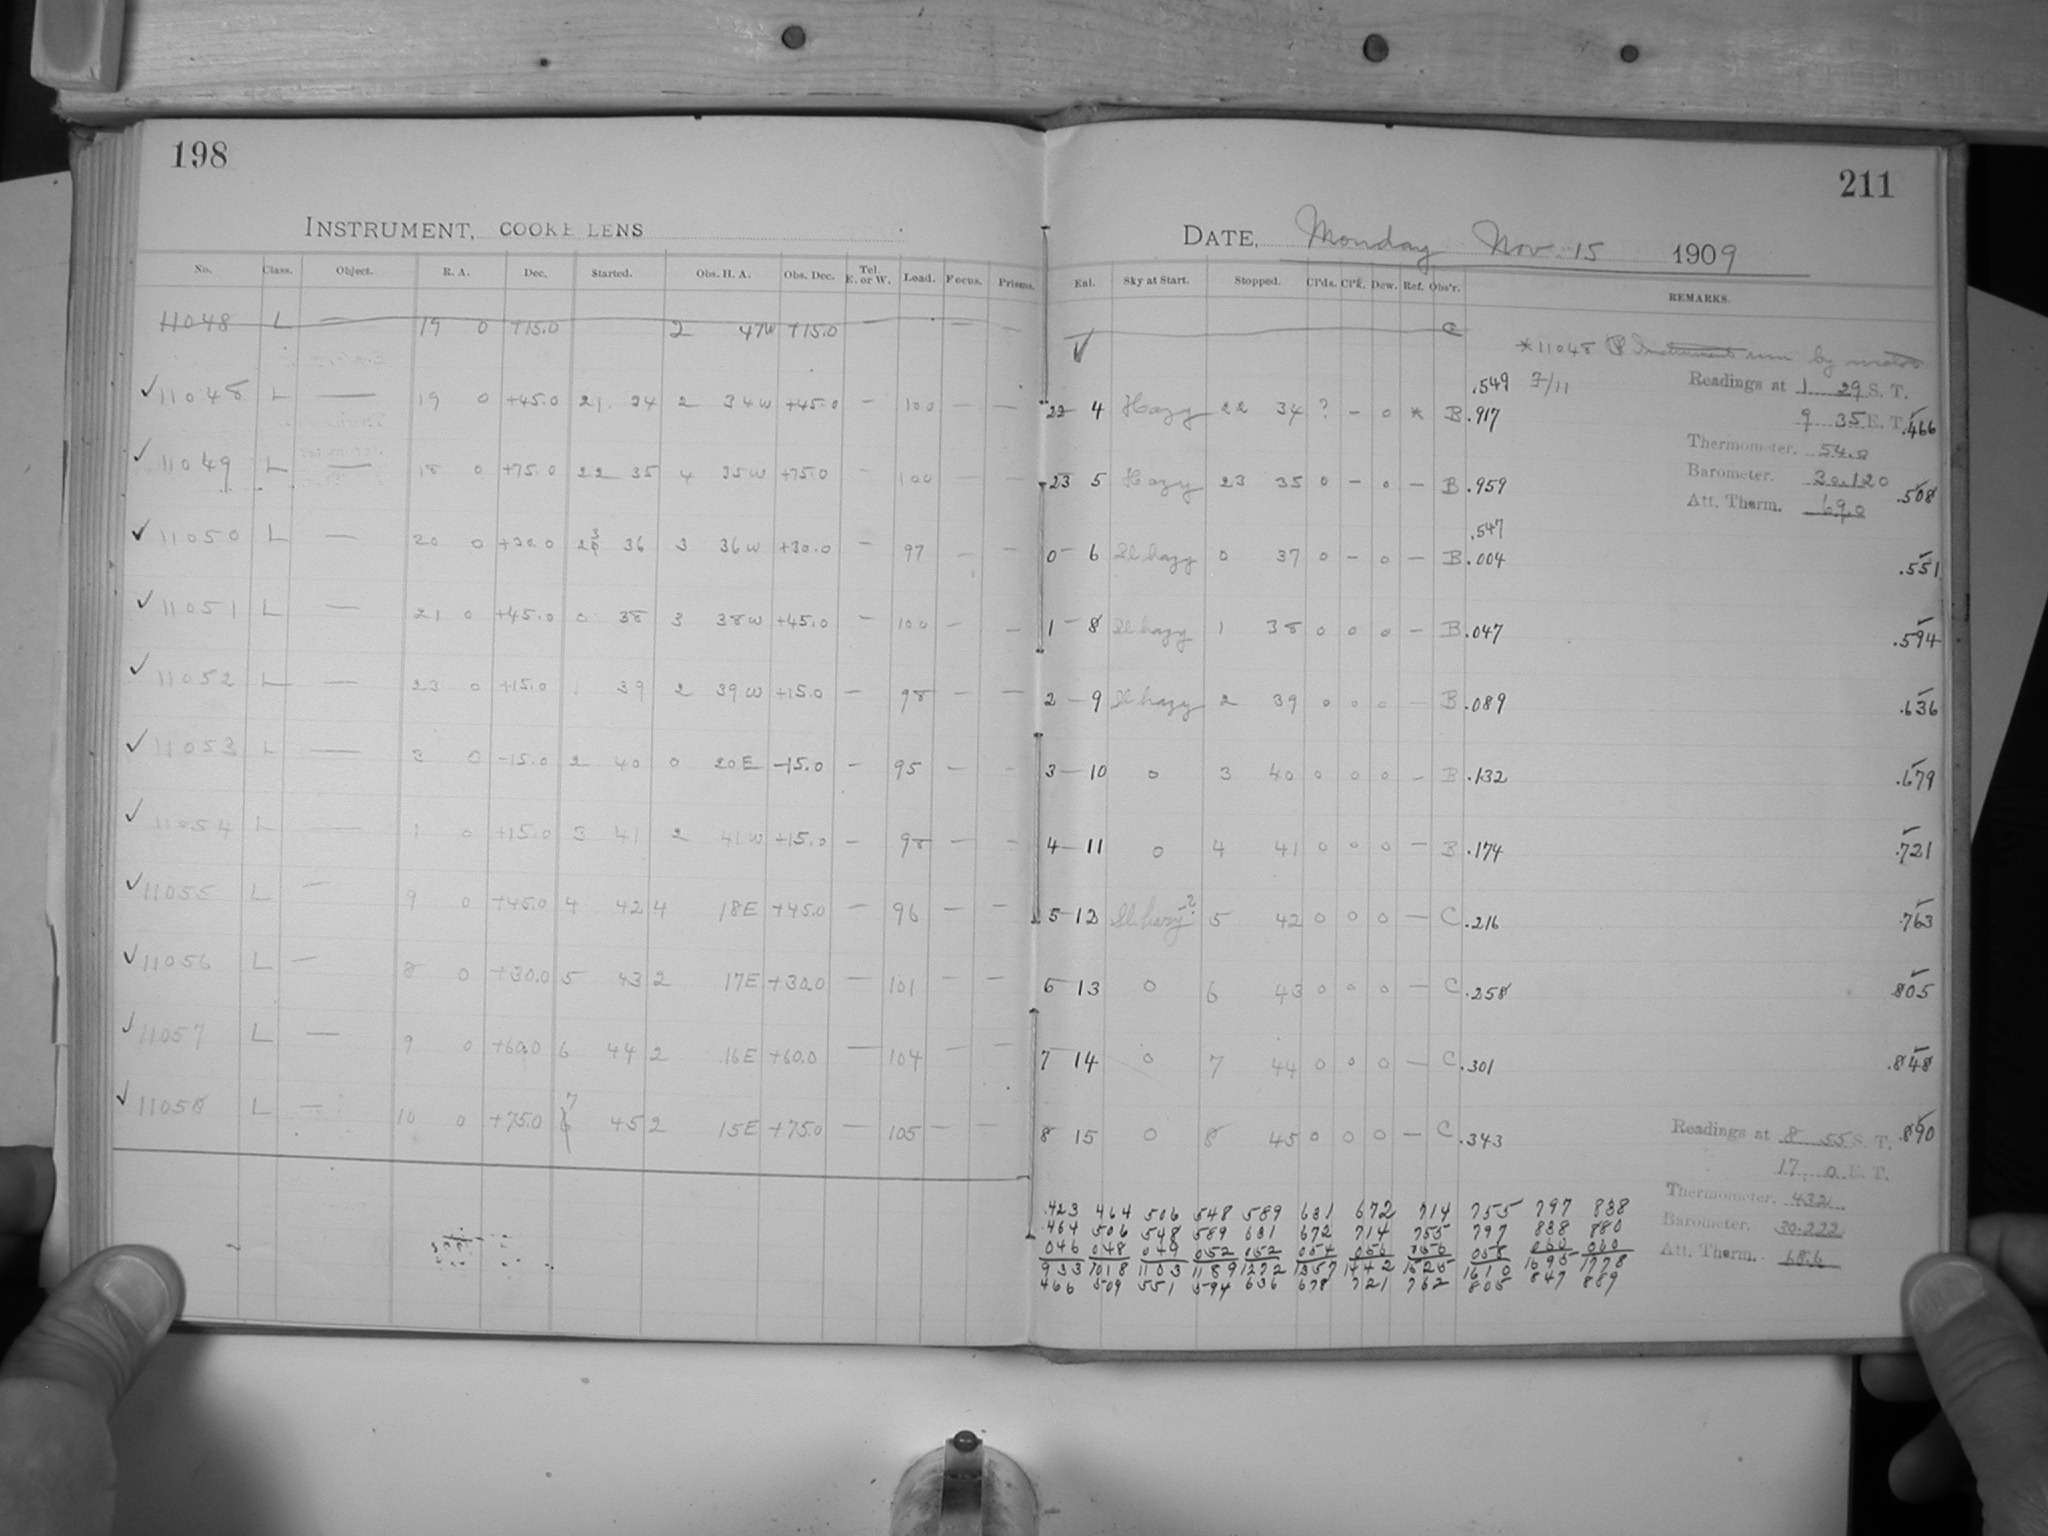 198
211
INSTRUMENT, COOKE LENS
DATE, Monday Nov. 15 1909
No. Class. Object. R. A. Dec. Started. Obs. H. A. Obs. Dec. Tel. E. or W. Load. Focus. Prisms. Eal. Sky at Start. Stopped. Cl'ds. Cl'k. Dew. Ref. Obs'r. REMARKS.
11048 L — 19 0 +15.0 2 47W +15.0 — — — C
*11048 Instrument run by
✓ 11048 L — 19 0 +45.0 21. 34 2 34W +45.0 — 100 — — 22 4 Hazy 22 34 ? – 0 * B .549 .917 7/11 Readings at 1 29 S. T.
9 35 E. T. .466
Thermometer. 54.8
✓ 11049 L — 18 0 +75.0 22 35 4 35W +75.0 – 100 — — 23 5 Hazy 23 35 0 – 0 – B .959 Barometer. 30.120 .508
Att. Therm. 69.0
✓ 11050 L — 20 0 +30.0 23 36 3 36W +30.0 – 97 – – 0 – 6 Sl hazy 0 37 0 – 0 – B .547 .004 .551
✓ 11051 L — 21 0 +45.0 0 38 3 38W +45.0 – 100 – – 1 – 8 Sl hazy 1 38 0 0 0 – B .047 .594
✓ 11052 L — 23 0 +15.0 1 39 2 39W +15.0 – 98 – – 2 – 9 Sl hazy 2 39 0 0 0 – B .089 .636
✓ 11053 L — 3 0 –15.0 2 40 0 20E –15.0 – 95 – – 3 – 10 0 3 40 0 0 0 – B .132 .679
✓ 11054 L — 1 0 +15.0 3 41 2 41W +15.0 – 98 – – 4 – 11 0 4 41 0 0 0 – B .174 .721
✓ 11055 L — 9 0 +45.0 4 42 4 18E +45.0 – 96 – – 5 – 12 Sl. hazy? 5 42 0 0 0 – C .216 .763
✓ 11056 L — 8 0 +30.0 5 43 2 17E +30.0 – 101 – – 6 – 13 0 6 43 0 0 0 – C .258 805
✓ 11057 L — 9 0 +60.0 6 44 2 16E +60.0 – 104 – – 7 14 0 7 44 0 0 0 – C .301 .848
✓ 11058 L — 10 0 +75.0 7 45 2 15E +75.0 – 105 – – 8 15 0 8 45 0 0 0 – C .343 Readings at 8 55 S. T. .890
17 0 E. T.
Thermometer. 43.2
Barometer. 30.222
Att. Therm. 68.6
.423 464 506 548 589 631 672 714 755 797 838
.464 506 548 589 631 672 714 755 797 838 880
046 048 049 052 052 054 056 056 058 060 060
933 1018 1103 1189 1272 1357 1442 1525 1610 1695 1778
466 509 551 594 636 678 721 762 805 847 889